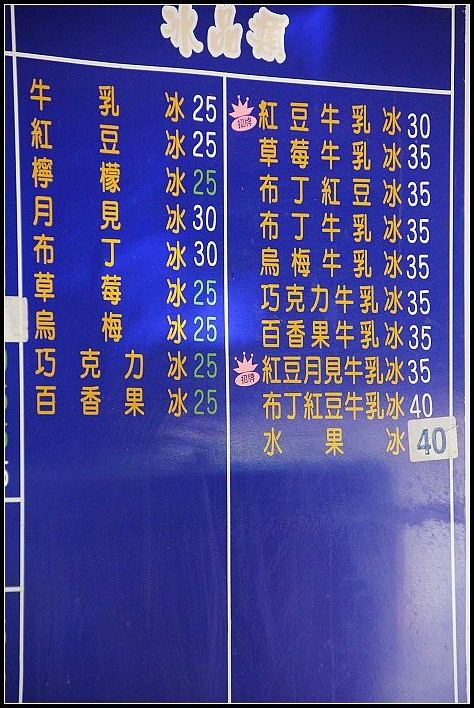 冰品類
牛乳冰25
紅豆冰25
檸檬冰25
月見冰30
布丁冰30
草莓冰25
烏梅冰25
巧克力冰25
百香果冰25
招牌 紅豆牛乳冰30
草莓牛乳冰35
布丁紅豆冰35
布丁牛乳冰35
烏梅牛乳冰35
巧克力牛乳冰35
百香果牛乳冰35
招牌 紅豆月見牛乳冰35
布丁紅豆牛乳冰40
水果冰40